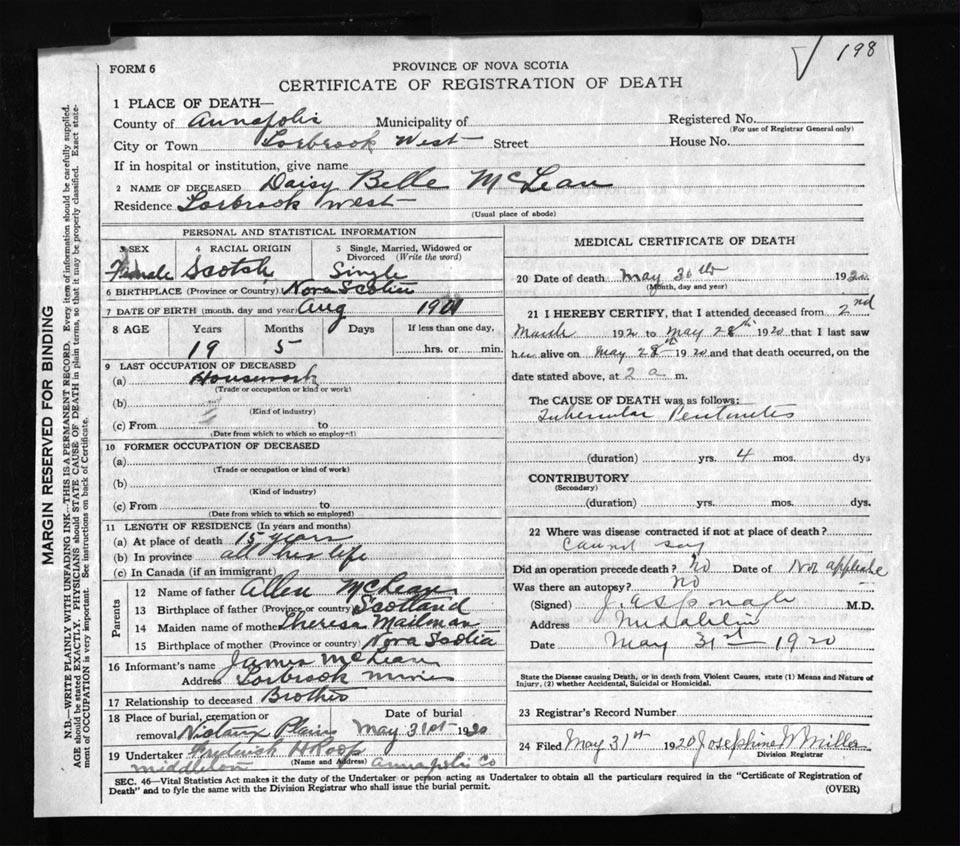 198
FORM 6
PROVINCE OF NOVA SCOTIA
CERTIFICATE OF REGISTRATION OF DEATH
MARGIN RESERVED FOR BINDING
N.B.—WRITE PLAINLY WITH UNFADING INK—THIS IS A PERMANENT RECORD. Every item of information should be carefully supplied.
AGE should be stated EXACTLY. PHYSICIANS should STATE CAUSE OF DEATH in plain terms, so that it may be properly classified. Exact state-
ment of OCCUPATION is very important. See instructions on back of Certificate.
1 PLACE OF DEATH—
County of Annapolis Municipality of Registered No.
(For use of Registrar General only)
City or Town Torbrook West Street House No.
If in hospital or institution, give name
2 NAME OF DECEASED Daisy Belle McLean
Residence Torbrook West
(Usual place of abode)
PERSONAL AND STATISTICAL INFORMATION
3 SEX 4 RACIAL ORIGIN 5 Single, Married, Widowed or
Divorced (Write the word)
Female Scotch Single
6 BIRTHPLACE (Province or Country) Nova Scotia
7 DATE OF BIRTH (month, day and year) Aug
8 AGE Years Months Days If less than one day,
19 5 hrs. or min.
9 LAST OCCUPATION OF DECEASED
(a) Housework
(Trade or occupation or kind or work)
(b)
(Kind of industry)
(c) From to
(Date from which to which so employed)
10 FORMER OCCUPATION OF DECEASED
(a)
(Trade or occupation or kind of work)
(b)
(Kind of industry)
(c) From to
(Date from which to which so employed)
11 LENGTH OF RESIDENCE (In years and months)
(a) At place of death 15 years
(b) In province all her life
(c) In Canada (if an immigrant)
Parents
12 Name of father Allen McLean
13 Birthplace of father (Province or country) Scotland
14 Maiden name of mother Theresa Mailman
15 Birthplace of mother (Province or country) Nova Scotia
16 Informant's name James McLean
Address Torbrook mines
17 Relationship to deceased Brother
18 Place of burial, cremation or Date of burial
removal Nictaux Plains May 31st 1920
19 Undertaker Frederick H Roop
(Name and Address)
Middleton Annapolis Co
MEDICAL CERTIFICATE OF DEATH
20 Date of death May 30th 1920
(Month, day and year)
21 I HEREBY CERTIFY, that I attended deceased from 2nd
March 1920 to May 28th 1920 that I last saw
her alive on May 28th 1920 and that death occurred, on the
date stated above, at 2 a m.
The CAUSE OF DEATH was as follows:
Tubercular Peritonitis
(duration) yrs. 4 mos. dys
CONTRIBUTORY
(Secondary)
(duration) yrs. mos. dys.
22 Where was disease contracted if not at place of death?
Cannot say
Did an operation precede death? No Date of Not applicable
Was there an autopsy? No
(Signed) J. A. Sponagle M.D.
Address Middleton
Date May 31st 1920
State the Disease causing Death, or in death from Violent Causes, state (1) Means and Nature of
Injury, (2) whether Accidental, Suicidal or Homicidal.
23 Registrar's Record Number
24 Filed May 31st 1920 Josephine W Miller
Division Registrar
SEC. 46—Vital Statistics Act makes it the duty of the Undertaker or person acting as Undertaker to obtain all the particulars required in the "Certificate of Registration of
Death" and to fyle the same with the Division Registrar who shall issue the burial permit. (OVER)